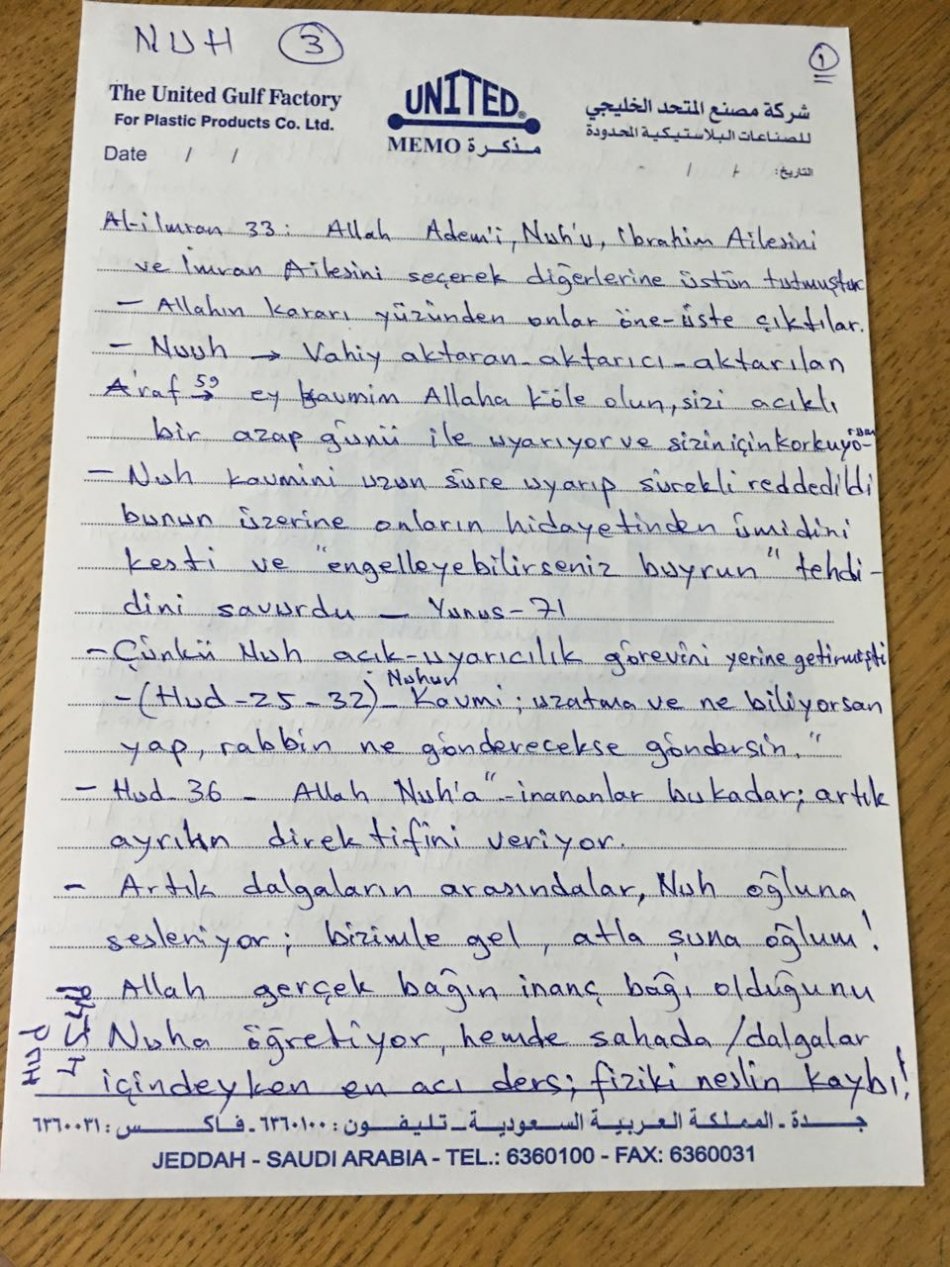 NUH 3
١
The United Gulf Factory
For Plastic Products Co. Ltd.
Date / /
UNITED®
MEMO مذكرة
شركة مصنع المتحد الخليجي
للصناعات البلاستيكية المحدودة
التاريخ: / /
Al-i İmran 33: Allah Adem'i, Nuh'u, İbrahim Ailesini
ve İmran Ailesini seçerek diğerlerine üstün tutmuştur
– Allahın kararı yüzünden onlar öne-üste çıktılar.
– Nuuh → Vahiy aktaran-aktarıcı-aktarılan
A'raf 59 → ey kavmim Allaha köle olun, sizi acıklı
bir azap günü ile uyarıyor ve sizin için korkuyorum
– Nuh kavmini uzun süre uyarıp sürekli reddedildi
bunun üzerine onların hidayetinden ümidini
kesti ve "engelleyebilirseniz buyrun" tehdi-
dini savurdu – Yunus-71
– Çünkü Nuh açık-uyarıcılık görevini yerine getirmişti
– (Hud-25-32) – Nuhun Kavmi; uzatma ve ne biliyorsan
yap, rabbin ne gönderecekse göndersin."
– Hud-36 – Allah Nuh'a "-inananlar bu kadar; artık
ayrılın direktifini veriyor.
– Artık dalgaların arasındalar, Nuh oğluna
sesleniyor; bizimle gel, atla şuna oğlum!
Allah gerçek bağın inanç bağı olduğunu
Nuha öğretiyor, hemde sahada/dalgalar
içindeyken en acı ders; fiziki neslin kaybı!
Hud
جدة - المملكة العربية السعودية - تليفون: ٦٣٦٠١٠٠ - فاكس: ٦٣٦٠٠٣١
JEDDAH - SAUDI ARABIA - TEL.: 6360100 - FAX: 6360031